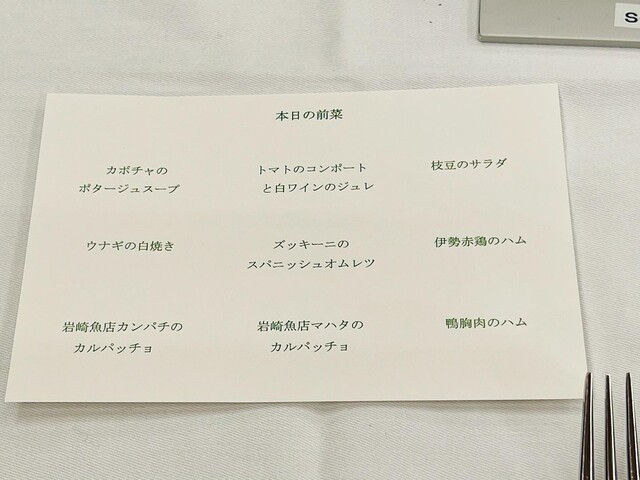 S
本日の前菜
カボチャの
ポタージュスープ
トマトのコンポート
と白ワインのジュレ
枝豆のサラダ
ウナギの白焼き
ズッキーニの
スパニッシュオムレツ
伊勢赤鶏のハム
岩崎魚店カンパチの
カルパッチョ
岩崎魚店マハタの
カルパッチョ
鴨胸肉のハム